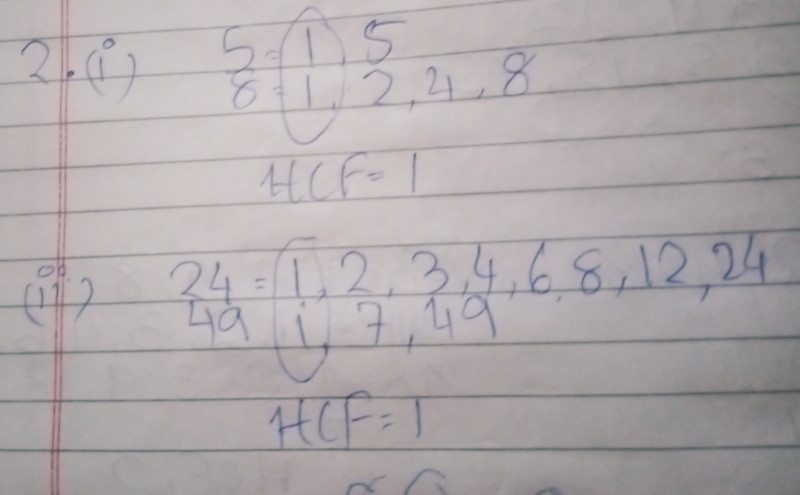 2.(i) 5 = 1, 5
8 = 1, 2, 4, 8
HCF = 1
(ii) 24 = 1, 2, 3, 4, 6, 8, 12, 24
49 1, 7, 49
HCF = 1